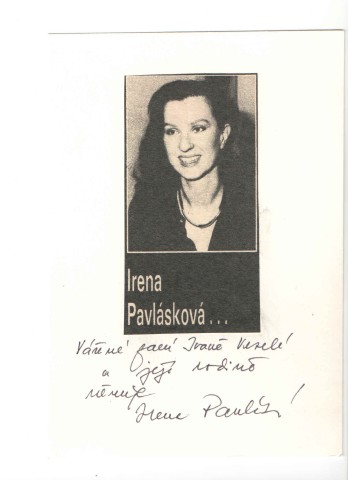 Irena
Pavlásková...
Vážené paní Ivaně Veselé
a její rodině
věnuje
Irena Pavlás!